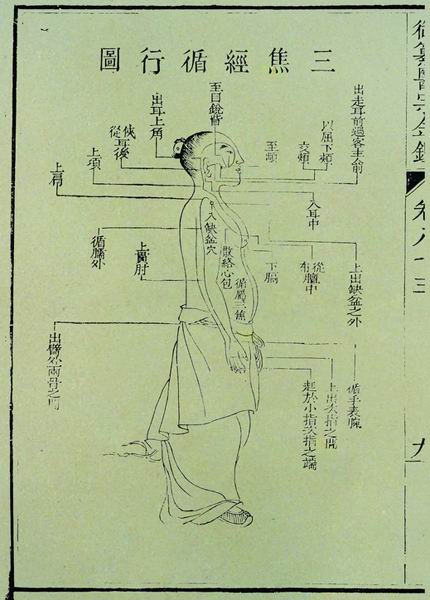 御纂醫宗金鑑
卷八十三
九
三焦經循行圖
出走耳前過客主人前
以屈下頰
交頰
至䪼
至目銳眥
出耳上角
俠耳後
從
上項
上肩
入耳中
入缺盆穴
散絡心包
循屬三焦
下膈
從膻中
布
上出缺盆之外
循臑外
上貫肘
出臂外兩骨之間
循手表腕
上出次指之間
起於小指次指之端